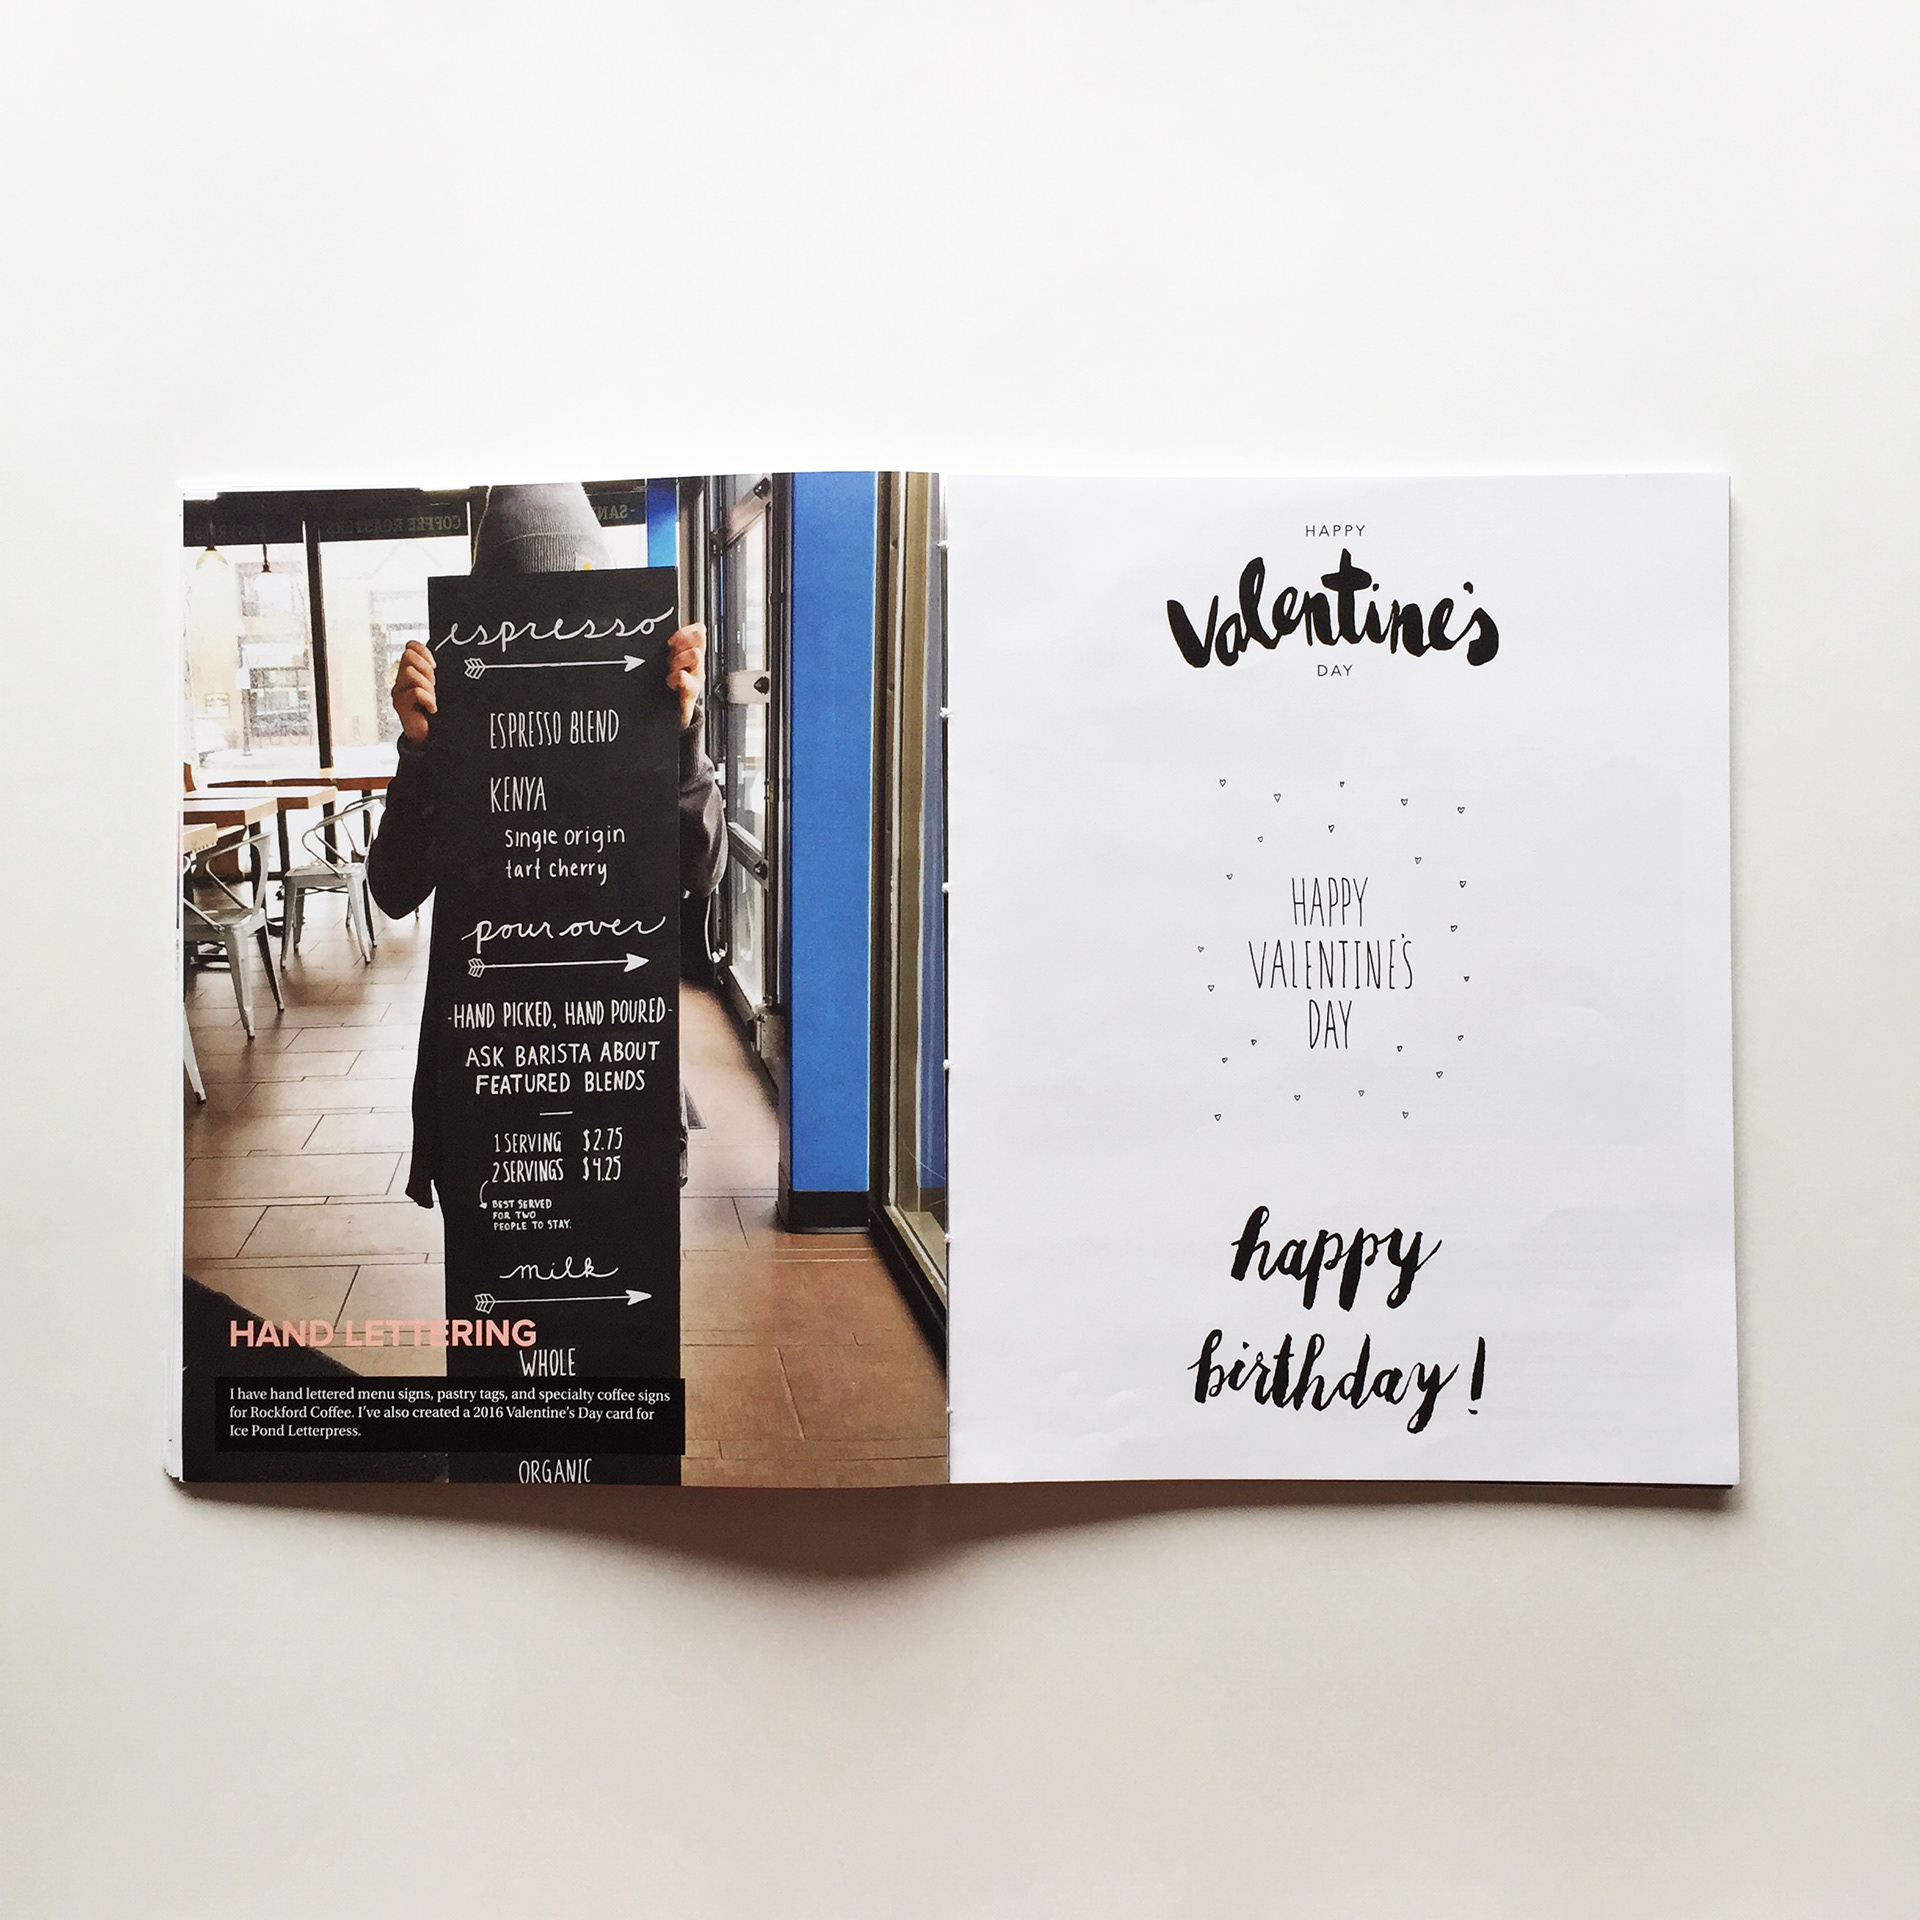 COFFEE ROASTERS
espresso
ESPRESSO BLEND
KENYA
single origin
tart cherry
pour over
-HAND PICKED, HAND POURED-
ASK BARISTA ABOUT
FEATURED BLENDS
1 SERVING $2.75
2 SERVINGS $4.25
BEST SERVED
FOR TWO
PEOPLE TO STAY.
milk
HAND LETTERING
WHOLE
I have hand lettered menu signs, pastry tags, and specialty coffee signs
for Rockford Coffee. I've also created a 2016 Valentine's Day card for
Ice Pond Letterpress.
ORGANIC
HAPPY
Valentine's
DAY
HAPPY
VALENTINE'S
DAY
happy
birthday!